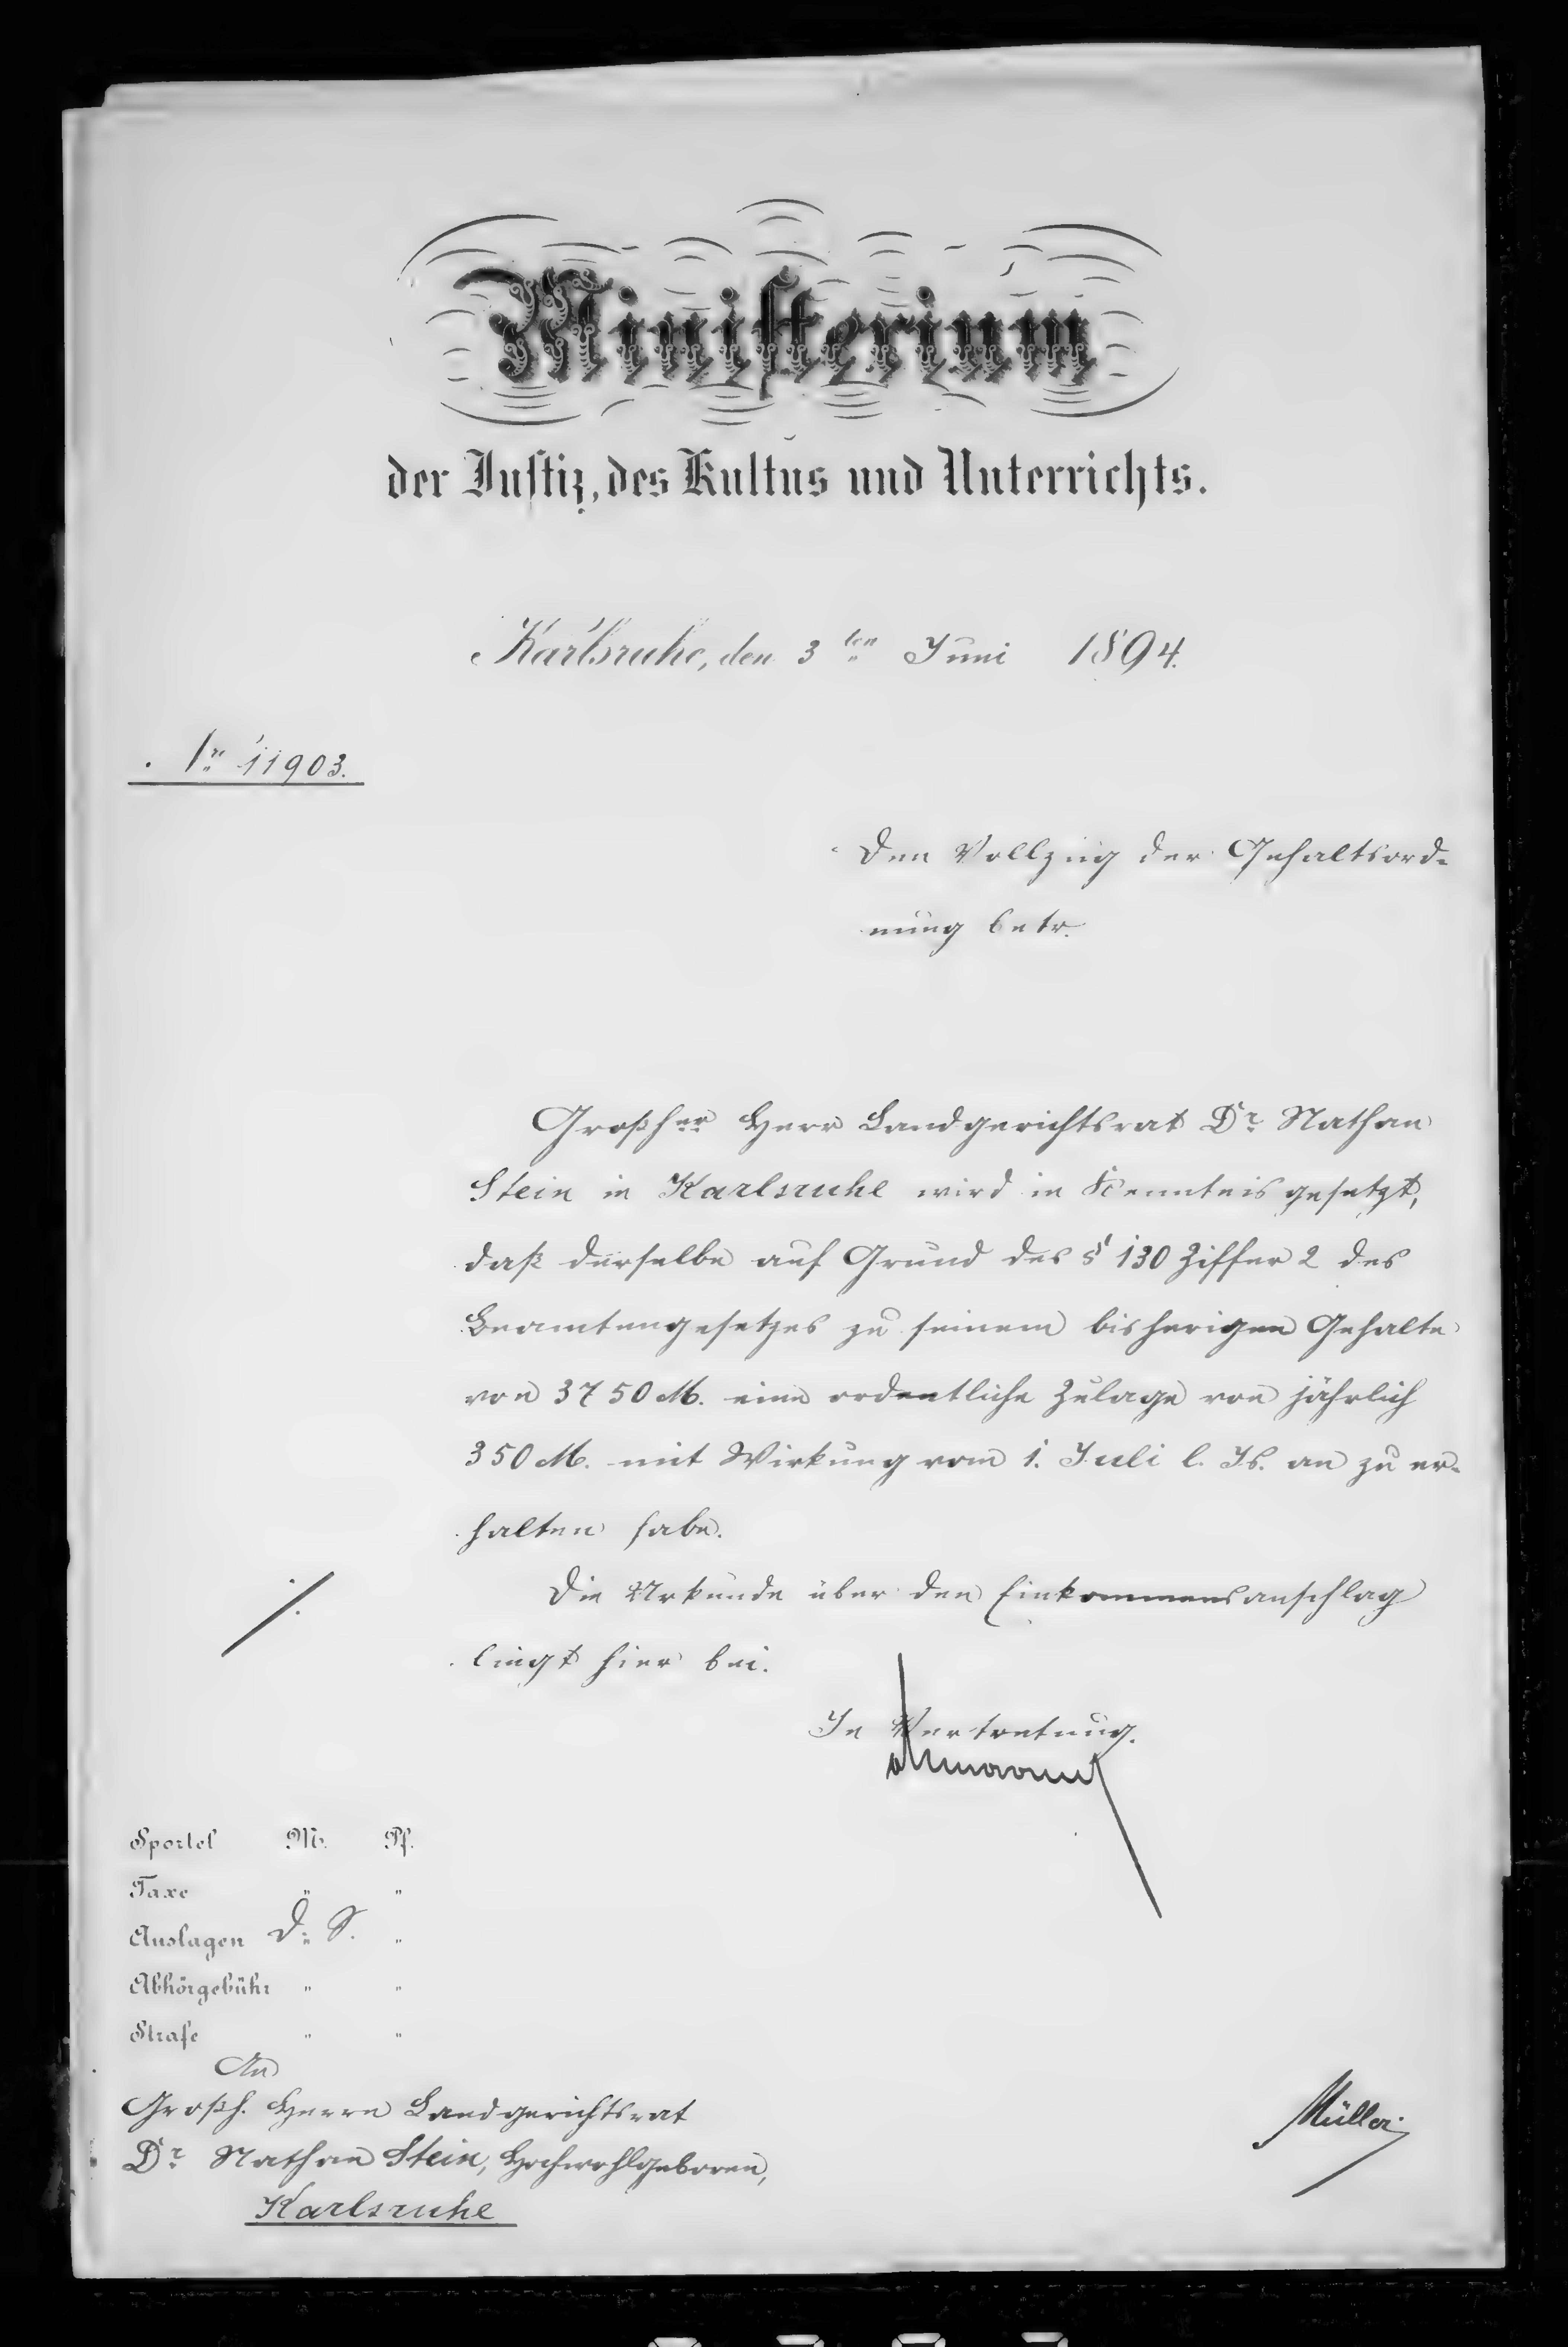 Ministerium
der Justiz, des Kultus und Unterrichts.
Karlsruhe, den 3ten Juni 1894.
Nr. 11903.
Den Vollzug der Gehaltsord-
nung betr.
Großher Herr Landgerichtsrat Dr. Nathan
Stein in Karlsruhe wird in Kenntnis gesetzt,
daß derselbe auf Grund des § 130 Ziffer 2 des
Beamtengesetzes zu seinem bisherigen Gehalte
von 3750 M. eine ordentliche Zulage von jährlich
350 M. mit Wirkung vom 1. Juli l. Js. an zu er-
halten habe.
Die Urkunde über den Einkommensanschlag
liegt hier bei.
In Vertretung.
Sportel M. Pf.
Taxe " "
Auslagen D. S. "
Abhörgebühr " "
Strafe " "
An
Großh. Herrn Landgerichtsrat
Dr. Nathan Stein, Hochwohlgeboren,
Karlsruhe
Müller